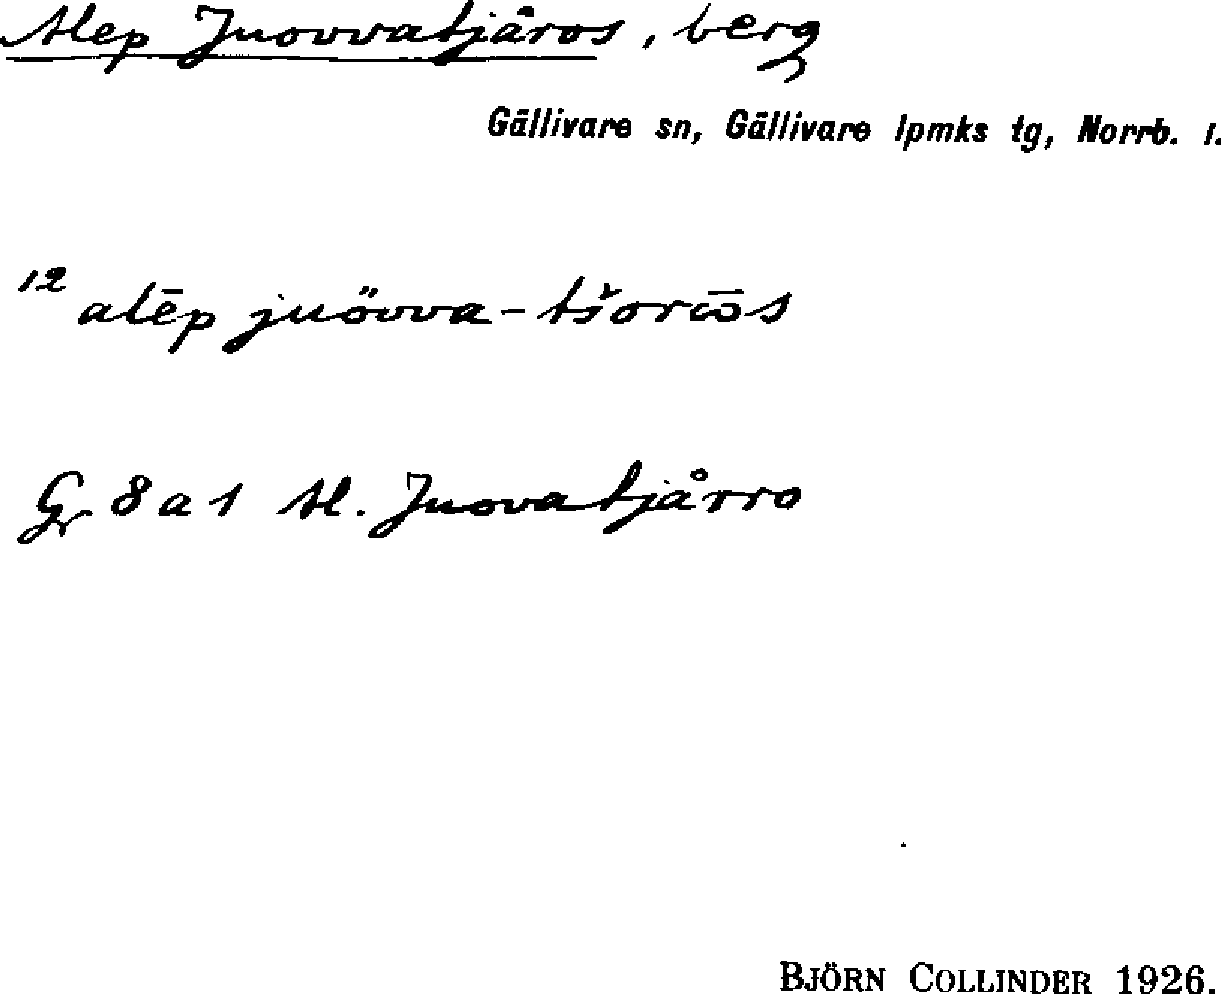 Alep Juovvatjåros, berg
Gällivare sn, Gällivare lpmks tg, Norrb. l.
12 alēp juövva-tšorω̄s
Gr 8 a 1 Al. Juovatjårro
BJÖRN COLLINDER 1926.